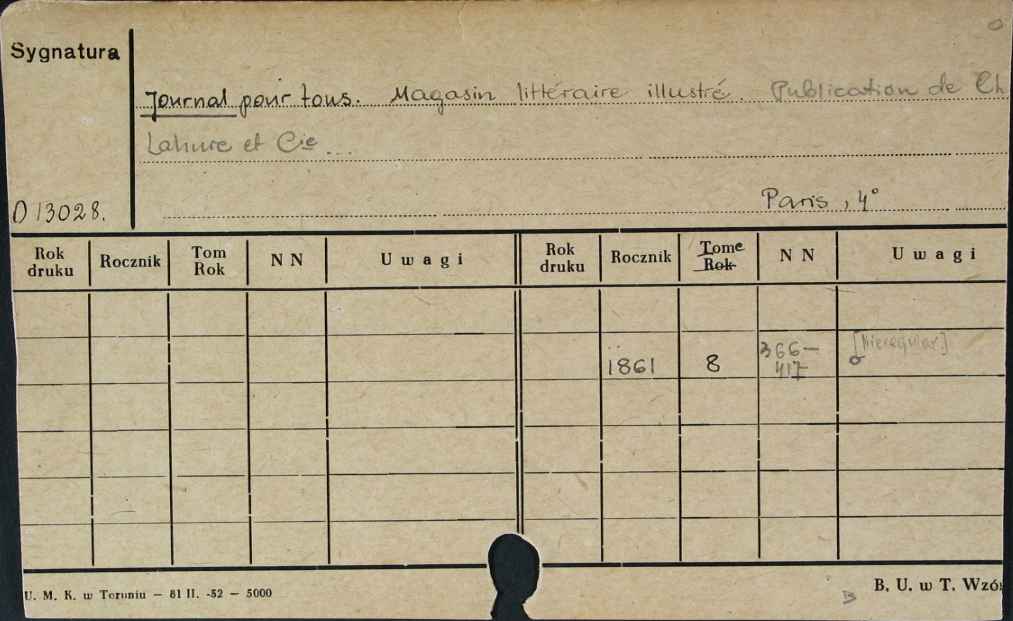 Sygnatura
Journal pour tous. Magasin littéraire illustré. Publication de Ch
Lahure et Cie ...
D 13028.
Paris, 4°
Rok druku Rocznik Tom Rok N N Uwagi Rok druku Rocznik Tome Rok N N Uwagi
1861 8 366-417
U. M. K. w Toruniu — 81 II. -52 — 5000
B. U. w T. Wzó